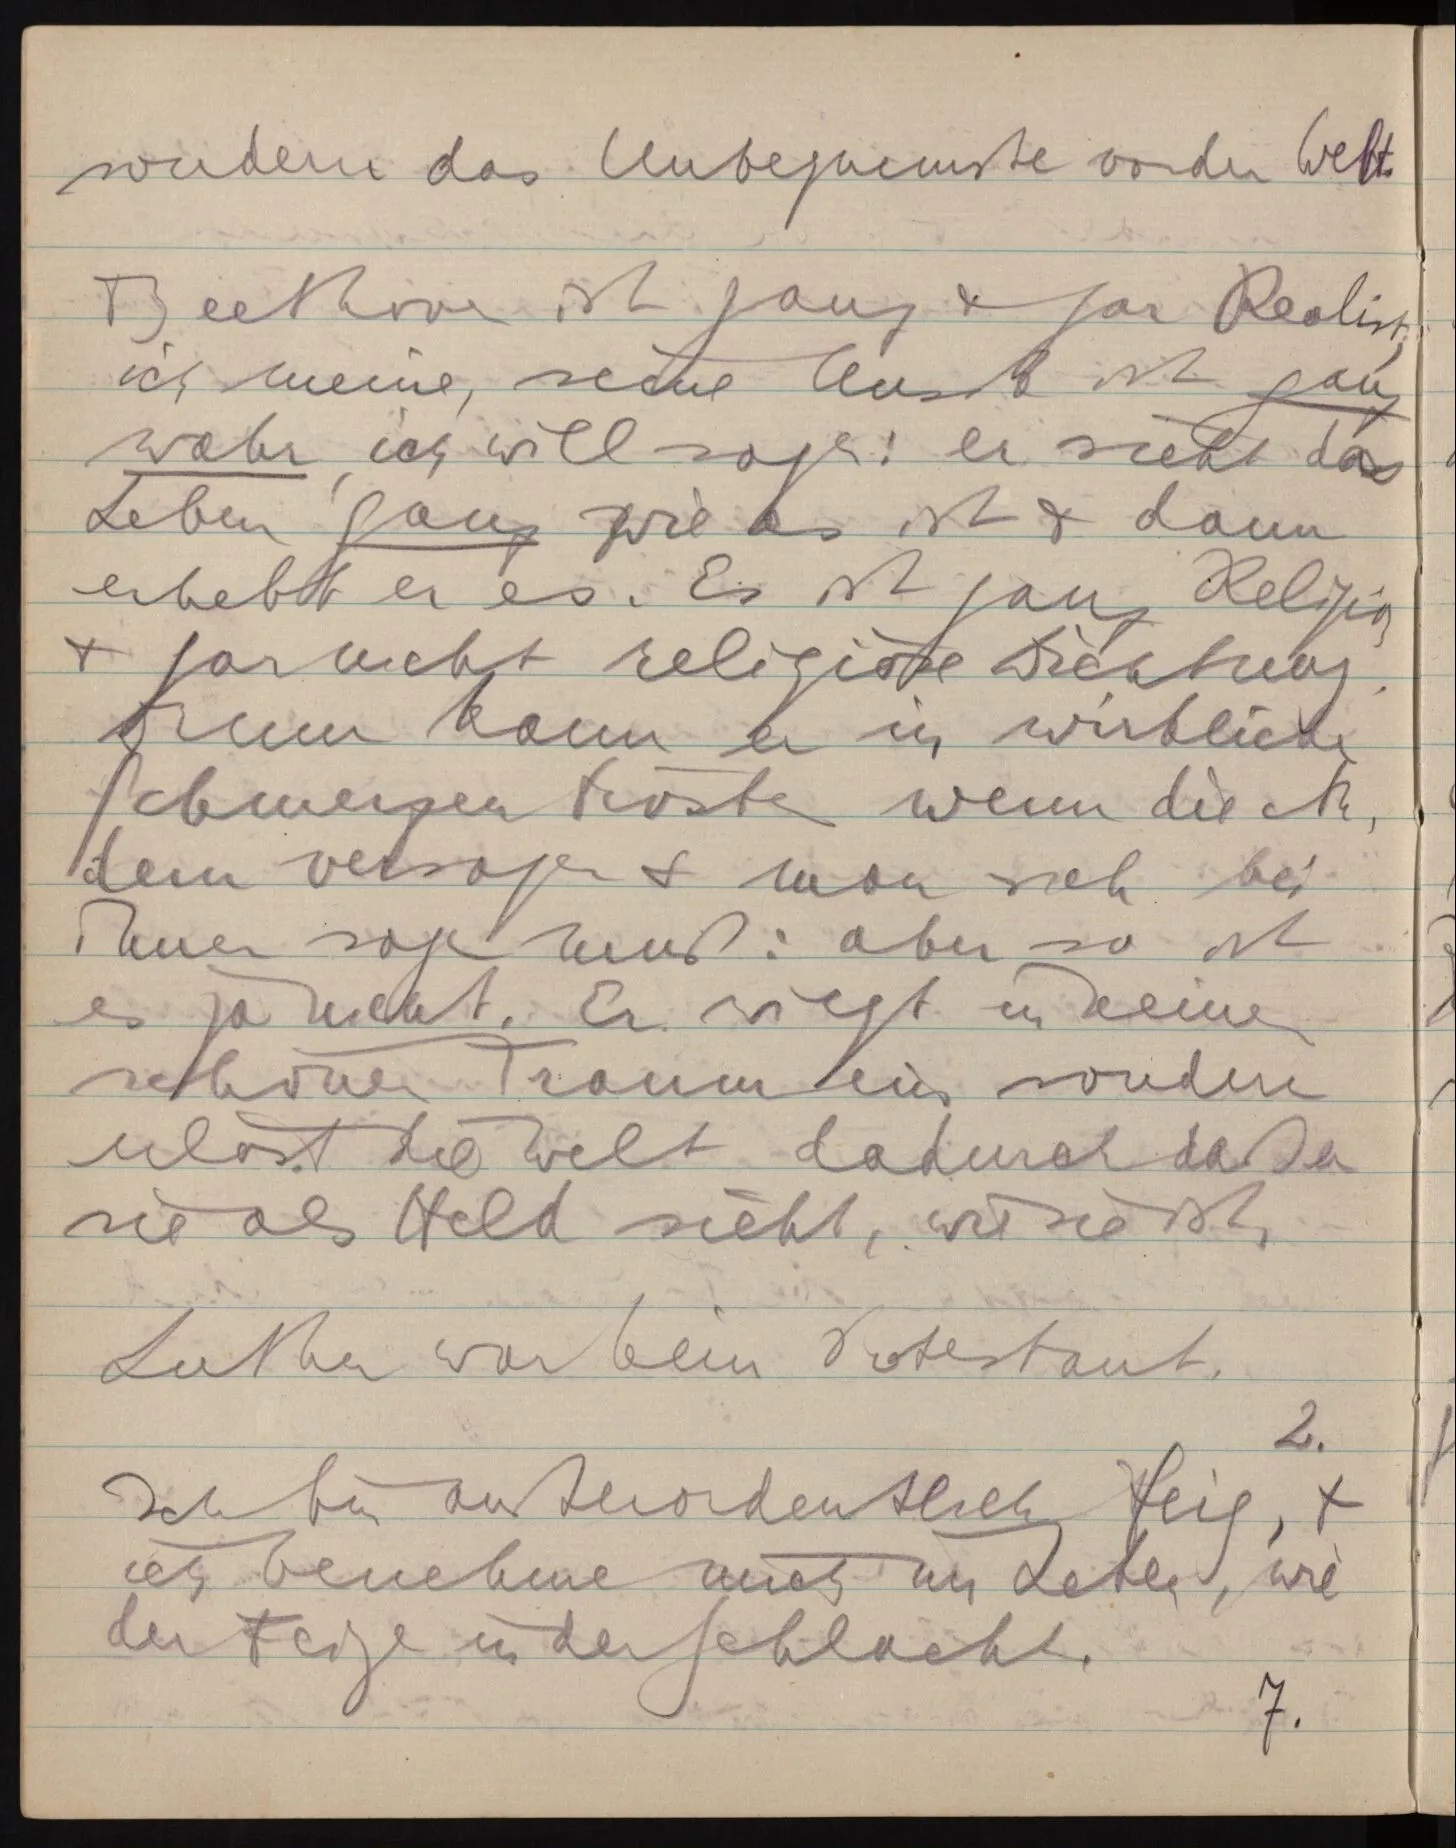 sondern das Unbequemste von der Welt.
Beethoven ist ganz & gar Realist,
ich meine, seine Musik ist ganz
wahr, ich will sagen: er sieht das
Leben ganz wie es ist & dann
erhebt er es. Es ist ganz Religion
& gar nicht religiöse Dichtung.
Drum kann er in wirklichen
Schmerzen trösten wenn die An-
dern versagen & man sich bei
ihnen sagen muß: aber so ist
es ja nicht. Er wiegt in keinen
schönen Traum ein sondern
erlöst die Welt dadurch daß er
sie als Held sieht, wie sie ist.
Luther war kein Protestant.
2.
Ich bin außerordentlich feig, &
ich benehme mich im Leben, wie
der Feige in der Schlacht.
7.